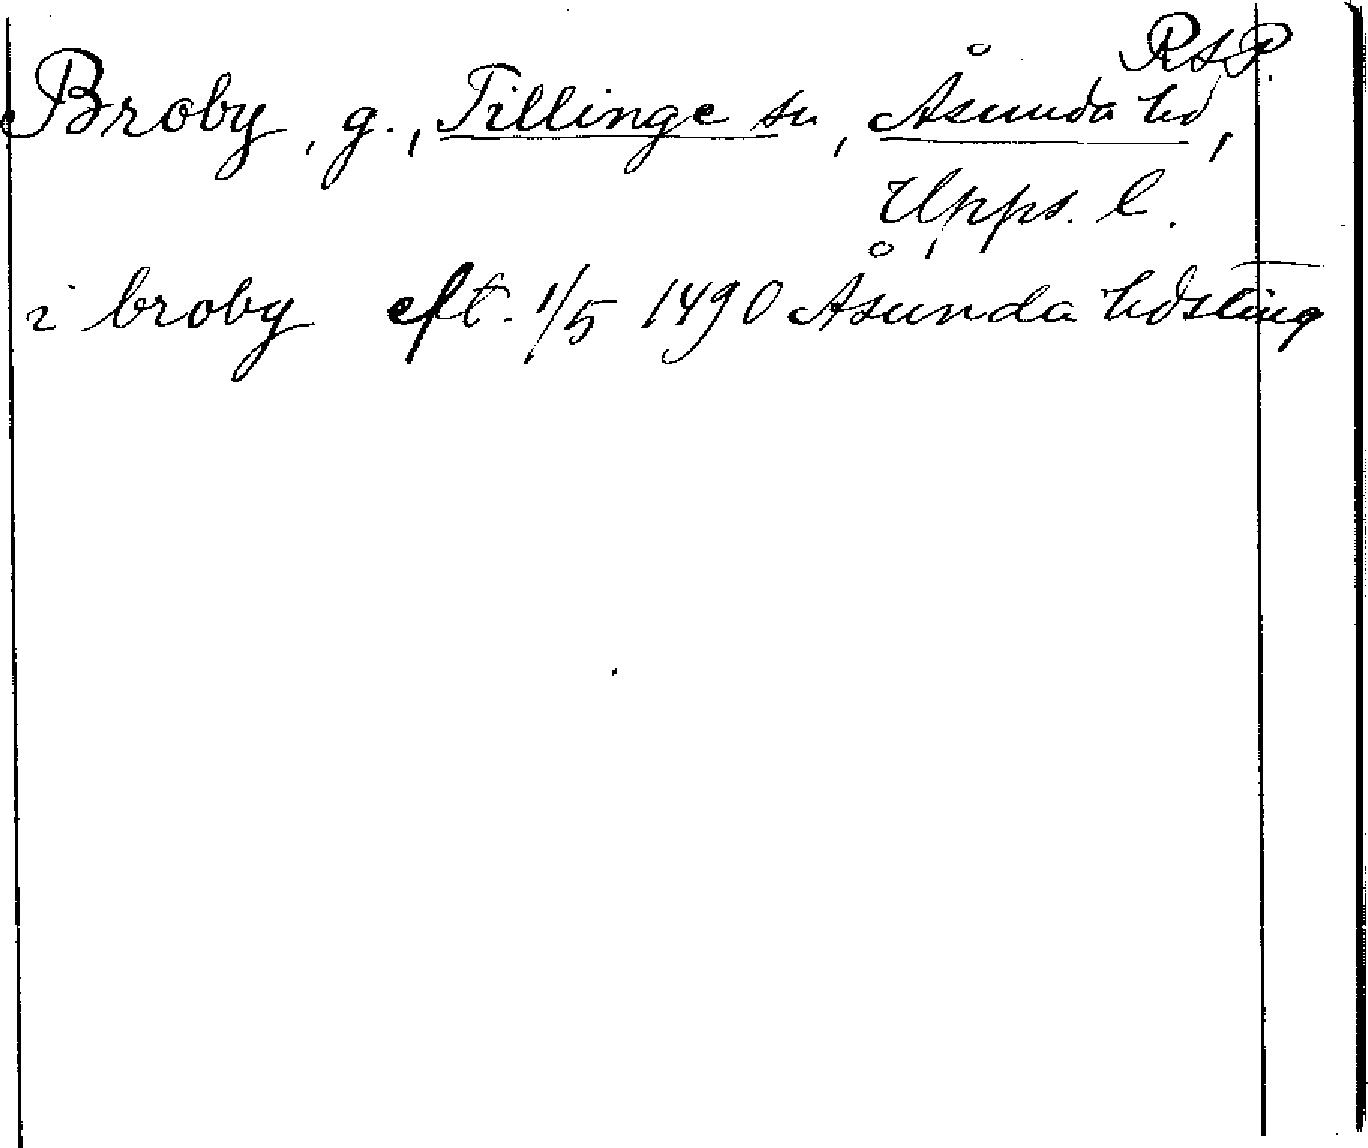 RAP.
Broby, g., Tillinge sn, Åsunda hd,
Upps. l.
i broby eft. 1/5 1490 Åsunda hdsting